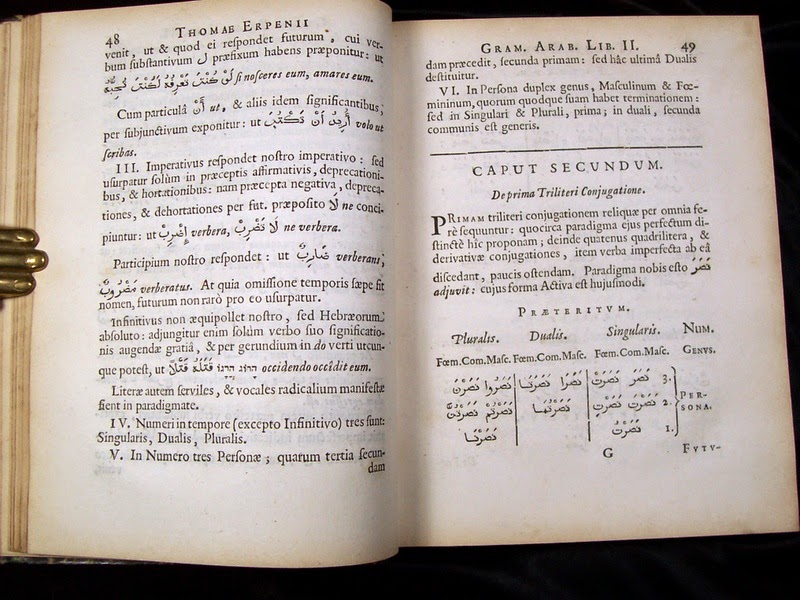 48 THOMAE ERPENII
venit, ut & quod ei reſpondet futurum, cui ver-
bum ſubſtantivum ل præfixum habens præponitur: ut
لَوْ كُنْتَ تَعْرِفُهُ لَكُنْتَ تُحِبُّهُ ſi noſceres eum, amares eum.
Cum particulâ أَنْ ut, & aliis idem ſignificantibus,
per ſubjunctivum exponitur: ut أُرِيدُ أَنْ تَكْتُبَ volo ut
ſcribas.
III. Imperativus reſpondet noſtro imperativo: ſed
uſurpatur ſolùm in præceptis affirmativis, deprecationi-
bus, & hortationibus: nam præcepta negativa, depreca-
tiones, & dehortationes per fut. præpoſito لَا ne conci-
piuntur: ut إِضْرِبْ verbera, لَا تَضْرِبْ ne verbera.
Participium noſtro reſpondet: ut ضَارِبٌ verberans,
مَضْرُوبٌ verberatus. At quia omiſſione temporis ſæpe fit
nomen, futurum non rarò pro eo uſurpatur.
Infinitivus non æquipollet noſtro, ſed Hebræorum
abſoluto: adjungitur enim ſolùm verbo ſuo ſignificatio-
nis augendæ gratiâ, & per gerundium in do verti utcun-
que poteſt, ut قَتَلَهُ قَتْلًا occidendo occidit eum.
Literæ autem ſerviles, & vocales radicalium manifeſtæ
fient in paradigmate.
IV. Numeri in tempore (excepto Infinitivo) tres ſunt:
Singularis, Dualis, Pluralis.
V. In Numero tres Perſonæ; quarum tertia ſecun-
dam
GRAM. ARAB. LIB. II. 49
dam præcedit, ſecunda primam: ſed hâc ultimâ Dualis
deſtituitur.
VI. In Perſona duplex genus, Maſculinum & Fœ-
mininum, quorum quodque ſuam habet terminationem:
ſed in Singulari & Plurali, prima; in duali, ſecunda
communis eſt generis.
CAPUT SECUNDUM.
De prima Triliteri Conjugatione.
PRIMAM triliteri conjugationem reliquæ per omnia fe-
rè ſequuntur: quocirca paradigma ejus perfectum di-
ſtinctè hîc proponam; deinde quatenus quadrilitera, &
derivativæ conjugationes, item verba imperfecta ab eâ
diſcedant, paucis oſtendam. Paradigma nobis eſto نَصَرَ
adjuvit: cujus forma Activa eſt hujuſmodi.
PRÆTERITVM.
Pluralis. Dualis. Singularis. NUM.
Fœm.Com.Maſc. Fœm.Com.Maſc. Fœm.Com.Maſc. GENVS.
نَصَرُوا نَصَرْنَ نَصَرَا نَصَرَتَا نَصَرَ نَصَرَتْ 3.
نَصَرْتُمْ نَصَرْتُنَّ نَصَرْتُمَا نَصَرْتَ نَصَرْتِ 2. PER-
SONA.
نَصَرْنَا نَصَرْتُ 1.
G FVTV-